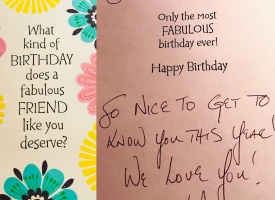 What
kind of
BIRTHDAY
does a
fabulous
FRIEND
like you
deserve?
Only the MOST
FABULOUS
birthday ever!
Happy Birthday
SO NICE TO GET TO
KNOW YOU THIS YEAR!
WE LOVE YOU!